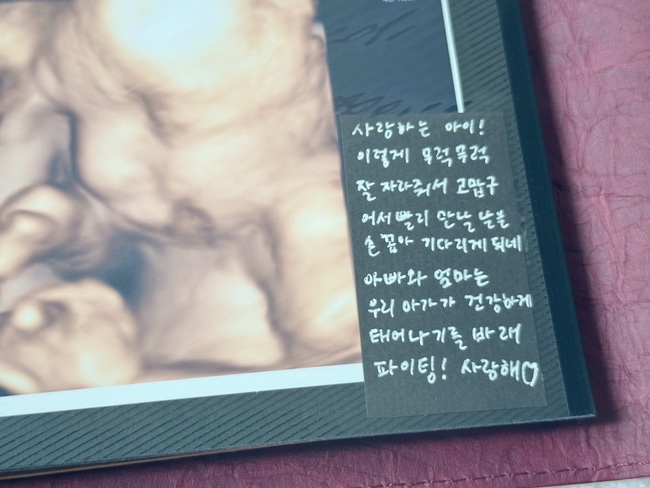 사랑하는 아이!
이렇게 무럭무럭
잘 자라줘서 고맙구
어서빨리 만날 날을
손꼽아 기다리게 되네
아빠와 엄마는
우리 아가가 건강하게
태어나기를 바래
파이팅! 사랑해♡